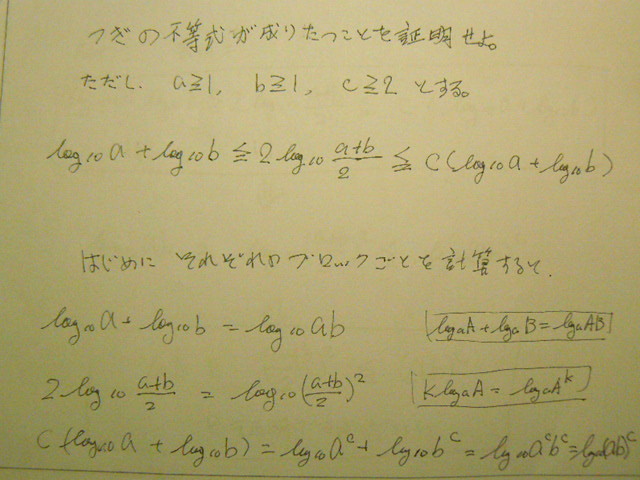 つぎの不等式が成りたつことを証明せよ。
ただし、a≧1, b≧1, c≧2 とする。
log₁₀a + log₁₀b ≦ 2 log₁₀ (a+b)/2 ≦ c(log₁₀a + log₁₀b)
はじめに それぞれのブロックごとを計算すると、
log₁₀a + log₁₀b = log₁₀ab
logₐA + logₐB = logₐAB
2 log₁₀ (a+b)/2 = log₁₀((a+b)/2)²
K logₐA = logₐAᵏ
c(log₁₀a + log₁₀b) = log₁₀aᶜ + log₁₀bᶜ = log₁₀aᶜbᶜ = log₁₀(ab)ᶜ